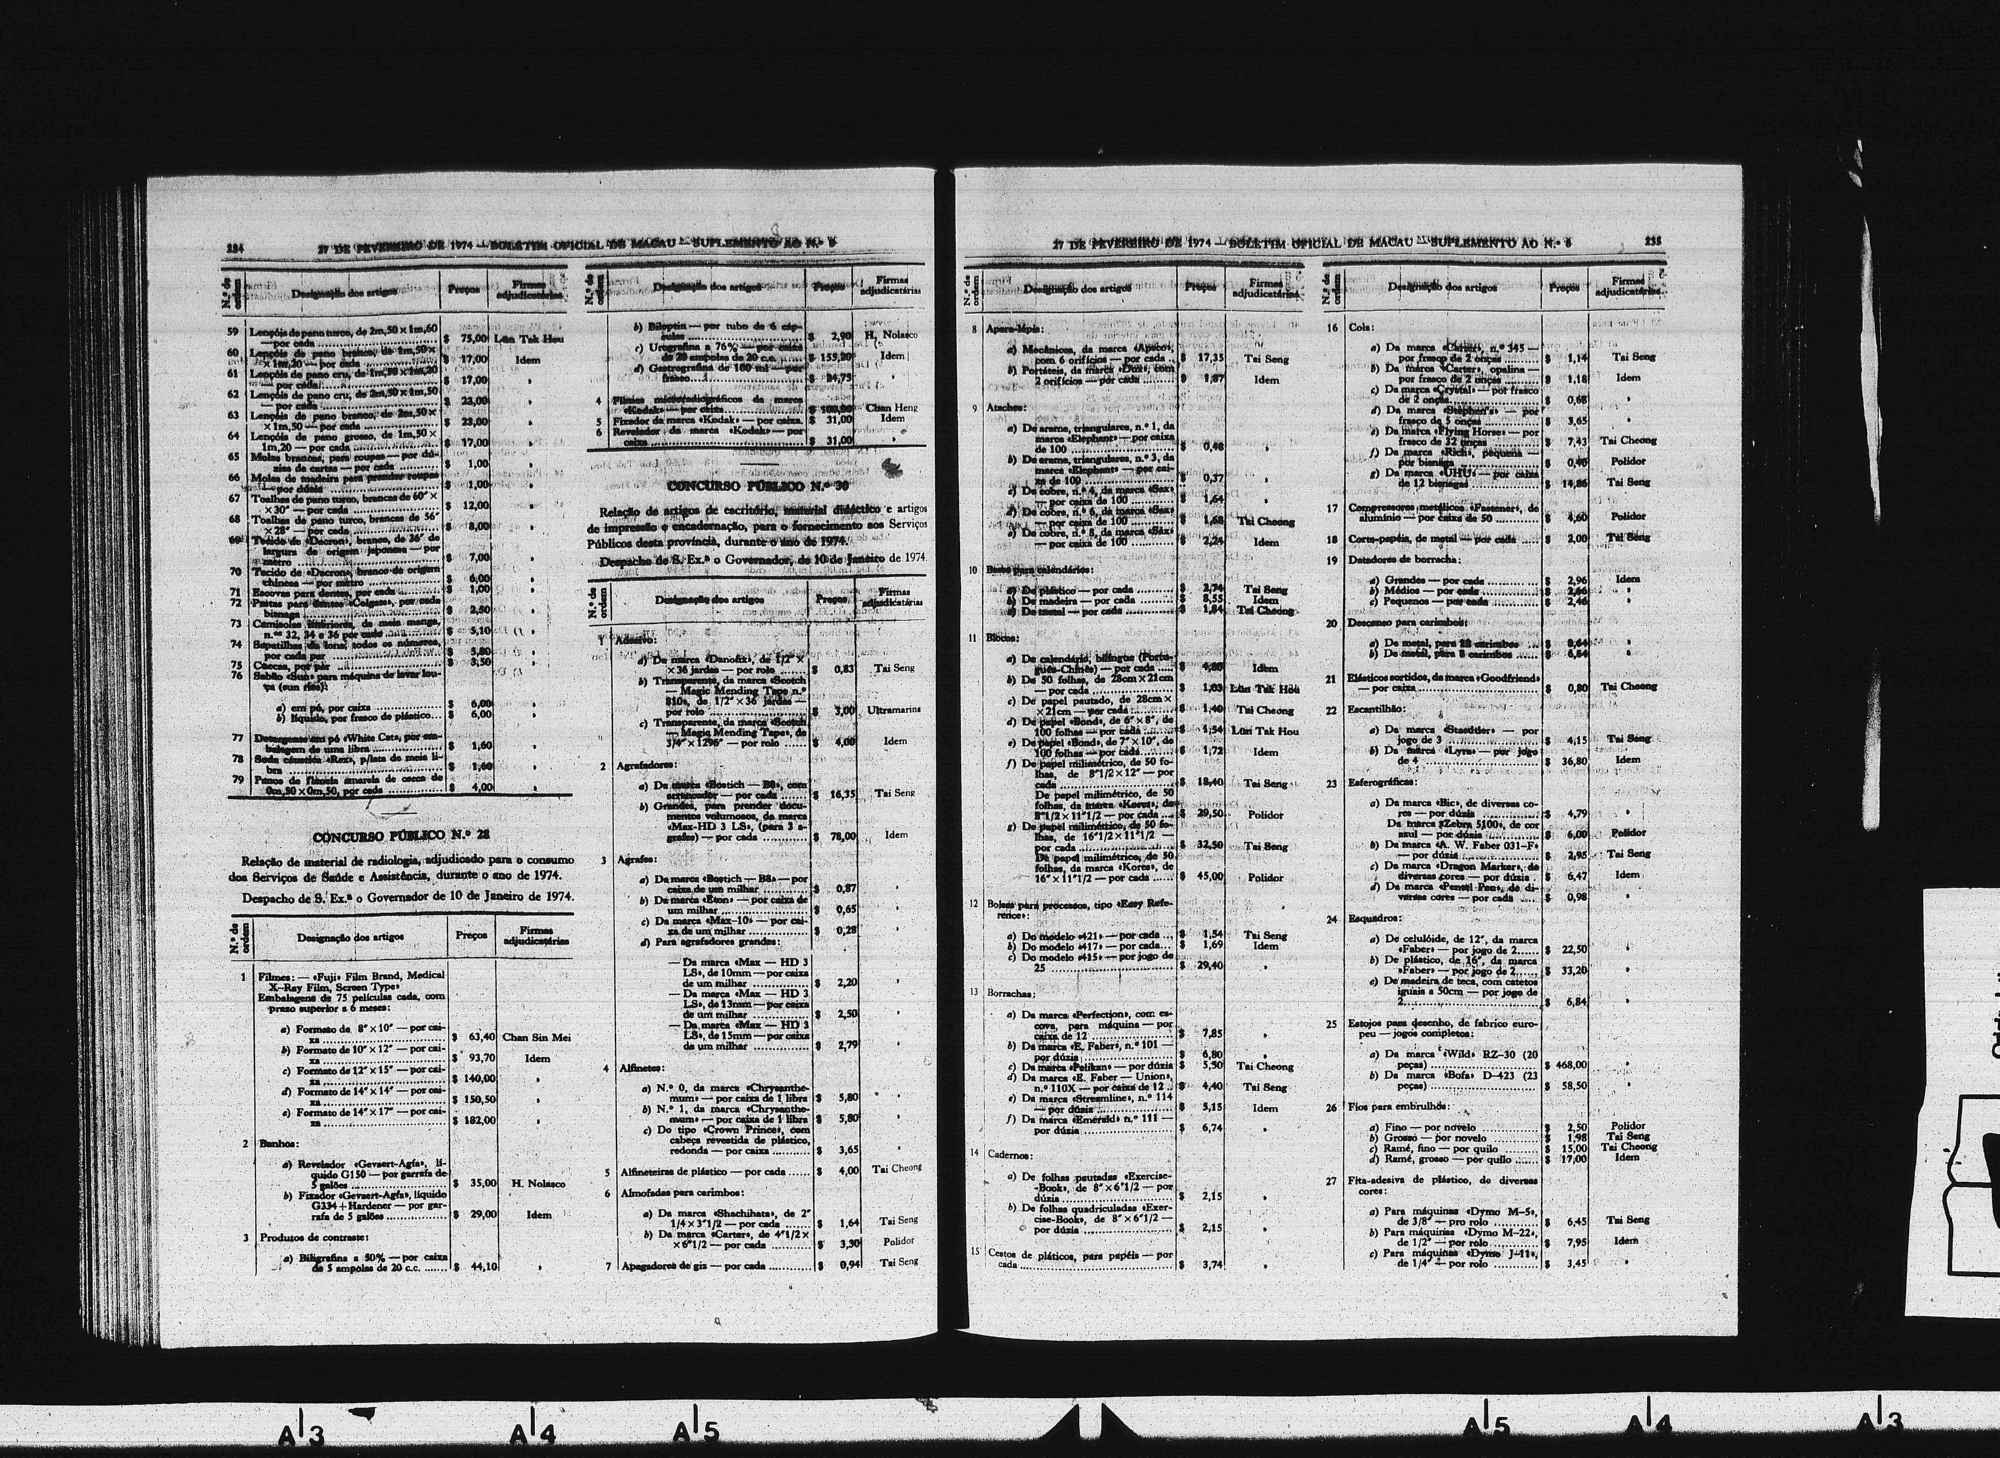 234
27 DE FEVEREIRO DE 1974 — BOLETIM OFICIAL DE MACAU — SUPLEMENTO AO N.º 8
N.º de ordem
Designação dos artigos
Preços
Firmas adjudicatárias
59 Lençóis de pano turco, de 2m,50×1m,60
— por cada ..... $ 75,00 Lün Tak Hou
60 Lençóis de pano branco, de 1m,50×
×1m,20 — por cada ..... $ 17,00 Idem
61 Lençóis de pano cru, de 1m,50×1m,20
— por cada ..... $ 17,00 »
62 Lençóis de pano cru, de 2m,50×1m,50
— por cada ..... $ 23,00 »
63 Lençóis de pano branco, de 2m,50×
×1m,50 — por cada ..... $ 23,00 »
64 Lençóis de pano grosso, de 1m,50×
1m,20 — por cada ..... $ 17,00 »
65 Molas brancas, para roupas — por dú-
zias de cartas — por cada ..... $ 1,00 »
66 Molas de madeira para prender roupas
— por dúzia ..... $ 1,00 »
67 Toalhas de pano turco, brancas de 60″×
×30″ — por cada ..... $ 12,00 »
68 Toalhas de pano turco, brancas de 56″
×28″ — por cada ..... $ 8,00 »
69 Tecido de «Dacron», branco, de 36″ de
largura de origem japonesa — por
metro ..... $ 7,00 »
70 Tecido de «Dacron», branco de origem
chinesa — por metro ..... $ 6,00 »
71 Escovas para dentes, por cada ..... $ 1,00 »
72 Pastas para dentes «Colgate», por cada
bisnaga ..... $ 2,50 »
73 Camisolas interiores, de meia manga,
n.ºs 32, 34 e 36 por cada ..... $ 5,10 »
74 Sapatilhas de lona, todos os números,
por cada par ..... $ 5,80 »
75 Cuecas, por par ..... $ 3,50 »
76 Sabão «Sun» para máquina de lavar lou-
ça (sun rise):
a) em pó, por caixa ..... $ 6,00 »
b) líquido, por frasco de plástico... $ 6,00 »
77 Detergente em pó «White Cat», por em-
balagem de uma libra ..... $ 1,60 »
78 Soda cáustica «Rex», p/lata de meia li-
bra ..... $ 1,60 »
79 Panos de flanela amarela de cerca de
0m,50×0m,50, por cada ..... $ 4,00 »
CONCURSO PÚBLICO N.º 28
Relação de material de radiologia, adjudicado para o consumo
dos Serviços de Saúde e Assistência, durante o ano de 1974.
Despacho de S. Ex.ª o Governador de 10 de Janeiro de 1974.
N.º de ordem
Designação dos artigos
Preços
Firmas adjudicatárias
1 Filmes: — «Fuji» Film Brand, Medical
X-Ray Film, Screen Type»
Embalagens de 75 películas cada, com
prazo superior a 6 meses:
a) Formato de 8″×10″ — por cai-
xa ..... $ 63,40 Chan Sin Mei
b) Formato de 10″×12″ — por cai-
xa ..... $ 93,70 Idem
c) Formato de 12″×15″ — por cai-
xa ..... $ 140,00 »
d) Formato de 14″×14″ — por cai-
xa ..... $ 150,50 »
e) Formato de 14″×17″ — por cai-
xa ..... $ 182,00 »
2 Banhos:
a) Revelador «Gevaert-Agfa», lí-
quido G150 — por garrafa de
5 galões ..... $ 35,00 H. Nolasco
b) Fixador «Gevaert-Agfa», líquido
G334+Hardener — por gar-
rafa de 5 galões ..... $ 29,00 Idem
3 Produtos de contraste:
a) Biligrafina a 50% — por caixa
de 5 ampolas de 20 c.c. ..... $ 44,10 »
N.º de ordem
Designação dos artigos
Preços
Firmas adjudicatárias
b) Biloptin — por tubo de 6 cáp-
sulas ..... $ 2,90 H. Nolasco
c) Urografina a 76% — por caixa
de 20 ampolas de 20 c.c. ..... $ 155,20 Idem
d) Gastrografina de 100 ml — por
frasco ..... $ 24,75 »
4 Filmes microradiográficos da marca
«Kodak» — por caixa ..... $ Chan Heng
5 Fixador da marca «Kodak» — por caixa. $ 31,00 Idem
6 Revelador da marca «Kodak» — por
caixa ..... $ 31,00 »
CONCURSO PÚBLICO N.º 30
Relação de artigos de escritório, material didáctico e artigos
de impressão e encadernação, para o fornecimento aos Serviços
Públicos desta província, durante o ano de 1974.
Despacho de S. Ex.ª o Governador, de 10 de Janeiro de 1974.
N.º de ordem
Designação dos artigos
Preços
Firmas adjudicatárias
1 Adesivo:
a) De marca «Danofix», de 1/2″×
×36 jardas — por rolo ..... $ 0,83 Tai Seng
b) Transparente, da marca «Scotch
— Magic Mending Tape n.º
810», de 1/2″×36 jardas —
por rolo ..... $ 3,00 Ultramarina
c) Transparente, da marca «Scotch
— Magic Mending Tape», de
3/4″×1296″ — por rolo ..... $ 4,00 Idem
2 Agrafadores:
a) Da marca «Bostich — B8», com
arrancador — por cada ..... $ 16,35 Tai Seng
b) Grandes, para prender docu-
mentos volumosos, da marca
«Max-HD 3 LS», (para 3 a-
grafes) — por cada ..... $ 78,00 Idem
3 Agrafes:
a) Da marca «Bostich — B8» — por
caixa de um milhar ..... $ 0,87 »
b) Da marca «Eton» — por caixa de
um milhar ..... $ 0,65 »
c) Da marca «Max-10» — por cai-
xa de um milhar ..... $ 0,28 »
d) Para agrafadores grandes:
— Da marca «Max — HD 3
LS», de 10mm — por caixa
de um milhar ..... $ 2,20 »
— Da marca «Max — HD 3
LS», de 13mm — por caixa
de um milhar ..... $ 2,50 »
— Da marca «Max — HD 3
LS», de 15mm — por caixa
de um milhar ..... $ 2,79 »
4 Alfinetes:
a) N.º 0, da marca «Chrysanthe-
mum» — por caixa de 1 libra $ 5,80 »
b) N.º 1, da marca «Chrysanthe-
mum» — por caixa de 1 libra $ 5,80 »
c) Do tipo «Crown Prince», com
cabeça revestida de plástico,
redonda — por caixa ..... $ 3,65 »
5 Alfineteiras de plástico — por cada ..... $ 4,00 Tai Cheong
6 Almofadas para carimbos:
a) Da marca «Shachihata», de 2″
1/4×3″1/2 — por cada ..... $ 1,64 Tai Seng
b) Da marca «Carter», de 4″1/2×
×6″1/2 — por cada ..... $ 3,30 Polidor
7 Apagadores de giz — por cada ..... $ 0,94 Tai Seng
27 DE FEVEREIRO DE 1974 — BOLETIM OFICIAL DE MACAU — SUPLEMENTO AO N.º 8
235
N.º de ordem
Designação dos artigos
Preços
Firmas adjudicatárias
8 Apara-lápis:
a) Mecânicos, da marca «Apsco»,
com 6 orifícios — por cada .. $ 17,35 Tai Seng
b) Portáteis, da marca «Dux», com
2 orifícios — por cada ..... $ 1,87 Idem
9 Ataches:
a) De arame, triangulares, n.º 1, da
marca «Elephant» — por caixa
de 100 ..... $ 0,48 »
b) De arame, triangulares, n.º 3, da
marca «Elephant» — por cai-
xa de 100 ..... $ 0,37 »
c) De cobre, n.º 4, da marca «Sax»
— por caixa de 100 ..... $ 1,64 »
d) De cobre, n.º 6, da marca «Sax»
— por caixa de 100 ..... $ 1,68 Tai Cheong
e) De cobre, n.º 8, da marca «Sax»
— por caixa de 100 ..... $ 2,24 Idem
10 Bases para calendários:
a) De plástico — por cada ..... $ 2,74 Tai Seng
b) De madeira — por cada ..... $ 3,55 Idem
c) De metal — por cada ..... $ 1,84 Tai Cheong
11 Blocos:
a) De calendário, bilingue (Portu-
guês-Chinês) — por cada ..... $ 4,80 Idem
b) De 50 folhas, de 28cm×21cm
— por cada ..... $ 1,03 Lün Tak Hou
c) De papel pautado, de 28cm×
×21cm — por cada ..... $ 1,40 Tai Cheong
d) De papel «Bond», de 6″×8″, de
100 folhas — por cada ..... $ 1,54 Lün Tak Hou
e) De papel «Bond», de 7″×10″, de
100 folhas — por cada ..... $ 1,72 Idem
f) De papel milimétrico, de 50 fo-
lhas, de 8″1/2×12″ — por
cada ..... $ 18,40 Tai Seng
De papel milimétrico, de 50
folhas, da marca «Kores», de
8″1/2×11″1/2 — por cada ..... $ 29,50 Polidor
g) De papel milimétrico, de 50 fo-
lhas, de 16″1/2×11″1/2 —
por cada ..... $ 32,50 Tai Seng
De papel milimétrico, de 50
folhas, da marca «Kores», de
16″×11″1/2 — por cada ..... $ 45,00 Polidor
12 Bolsas para processos, tipo «Easy Refe-
rence»:
a) Do modelo «421» — por cada ... $ 1,54 Tai Seng
b) Do modelo «417» — por cada ... $ 1,69 Idem
c) Do modelo «415» — por jogo de
25 ..... $ 29,40 »
13 Borrachas:
a) Da marca «Perfection», com es-
cova, para máquina — por
caixa de 12 ..... $ 7,85 »
b) Da marca «E. Faber», n.º 101 —
por dúzia ..... $ 6,80 »
c) Da marca «Pelikan» — por dúzia $ 5,50 Tai Cheong
d) Da marca «E. Faber — Union»,
n.º 110X — por caixa de 12 .. $ 4,40 Tai Seng
e) Da marca «Streamline», n.º 114
— por dúzia ..... $ 5,15 Idem
f) Da marca «Emerald» n.º 111 —
por dúzia ..... $ 6,74 »
14 Cadernos:
a) De folhas pautadas «Exercise-
-Book», de 8″×6″1/2 — por
dúzia ..... $ 2,15 »
b) De folhas quadriculadas «Exer-
cise-Book», de 8″×6″1/2 —
por dúzia ..... $ 2,15 »
15 Cestos de pláticos, para papéis — por
cada ..... $ 3,74 »
N.º de ordem
Designação dos artigos
Preços
Firmas adjudicatárias
16 Cola:
a) Da marca «Carter», n.º 345 —
por frasco de 2 onças ..... $ 1,14 Tai Seng
b) Da marca «Carter», opalina —
por frasco de 2 onças ..... $ 1,18 Idem
c) Da marca «Crystal» — por frasco
de 2 onças ..... $ 0,68 »
d) Da marca «Stephen's» — por
frasco de 5 onças ..... $ 3,65 »
e) Da marca «Flying Horse» — por
frasco de 32 onças ..... $ 7,43 Tai Cheong
f) Da marca «Rich», pequena —
por bisnaga ..... $ 0,40 Polidor
g) Da marca «UHU» — por caixa
de 12 bisnagas ..... $ 14,86 Tai Seng
17 Compressores metálicos «Fastener», de
alumínio — por caixa de 50 ..... $ 4,60 Polidor
18 Corta-papéis, de metal — por cada ..... $ 2,00 Tai Seng
19 Datadores de borracha:
a) Grandes — por cada ..... $ 2,96 Idem
b) Médios — por cada ..... $ 2,66 »
c) Pequenos — por cada ..... $ 2,46 »
20 Descanso para carimbos:
a) De metal, para 12 carimbos ... $ 8,64 »
b) De metal, para 8 carimbos ..... $ 6,84 »
21 Elásticos sortidos, da marca «Goodfriend»
— por caixa ..... $ 0,80 Tai Cheong
22 Escantilhão:
a) Da marca «Staedtler» — por
jogo de 3 ..... $ 4,15 Tai Seng
b) Da marca «Lyra» — por jogo
de 4 ..... $ 36,80 Idem
23 Esferográficas:
a) Da marca «Bic», de diversas co-
res — por dúzia ..... $ 4,79 »
Da marca «Zebra 5100», de cor
azul — por dúzia ..... $ 6,00 Polidor
b) Da marca «A. W. Faber 031-F»
— por dúzia ..... $ 2,95 Tai Seng
c) Da marca «Dragon Marker», de
diversas cores — por dúzia . $ 6,47 Idem
d) Da marca «Pentel Pen», de di-
versas cores — por cada ..... $ 0,98 »
24 Esquadros:
a) De celulóide, de 12″, da marca
«Faber» — por jogo de 2 ..... $ 22,50 »
b) De plástico, de 16″, da marca
«Faber» — por jogo de 2 ..... $ 33,20 »
c) De madeira de teca, com catetos
iguais a 50cm — por jogo de
2 ..... $ 6,84 »
25 Estojos para desenho, de fabrico euro-
peu — jogos completos:
a) Da marca «Wild» RZ-30 (20
peças) ..... $ 468,00 »
b) Da marca «Bofa» D-423 (23
peças) ..... $ 58,50 »
26 Fios para embrulhos:
a) Fino — por novelo ..... $ 2,50 Polidor
b) Grosso — por novelo ..... $ 1,98 Tai Seng
c) Ramé, fino — por quilo ..... $ 15,00 Tai Cheong
d) Ramé, grosso — por quilo ..... $ 17,00 Idem
27 Fita-adesiva de plástico, de diversas
cores:
a) Para máquinas «Dymo M-5»,
de 3/8″ — pro rolo ..... $ 6,45 Tai Seng
b) Para máquinas «Dymo M-22»,
de 1/2″ — por rolo ..... $ 7,95 Idem
c) Para máquinas «Dymo J-11»,
de 1/4″ — por rolo ..... $ 3,45 »
A|3 A|4 A|5 A|5 A|4 A|3